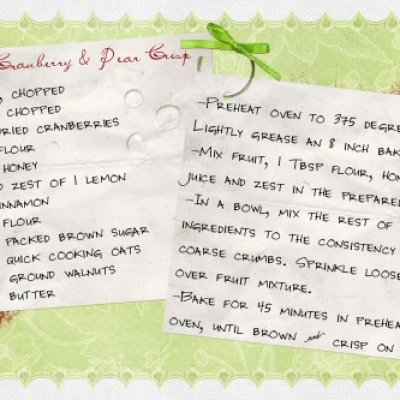 Cranberry & Pear Crisp
CHOPPED
CHOPPED
DRIED CRANBERRIES
FLOUR
HONEY
ZEST OF 1 LEMON
CINNAMON
FLOUR
PACKED BROWN SUGAR
QUICK COOKING OATS
GROUND WALNUTS
BUTTER
-PREHEAT OVEN TO 375 DEGRE
LIGHTLY GREASE AN 8 INCH BAK
-MIX FRUIT, 1 TBSP FLOUR, HON
JUICE AND ZEST IN THE PREPARE
-IN A BOWL, MIX THE REST OF
INGREDIENTS TO THE CONSISTENCY
COARSE CRUMBS. SPRINKLE LOOSE
OVER FRUIT MIXTURE.
-BAKE FOR 45 MINUTES IN PREHEA
OVEN, UNTIL BROWN and CRISP ON